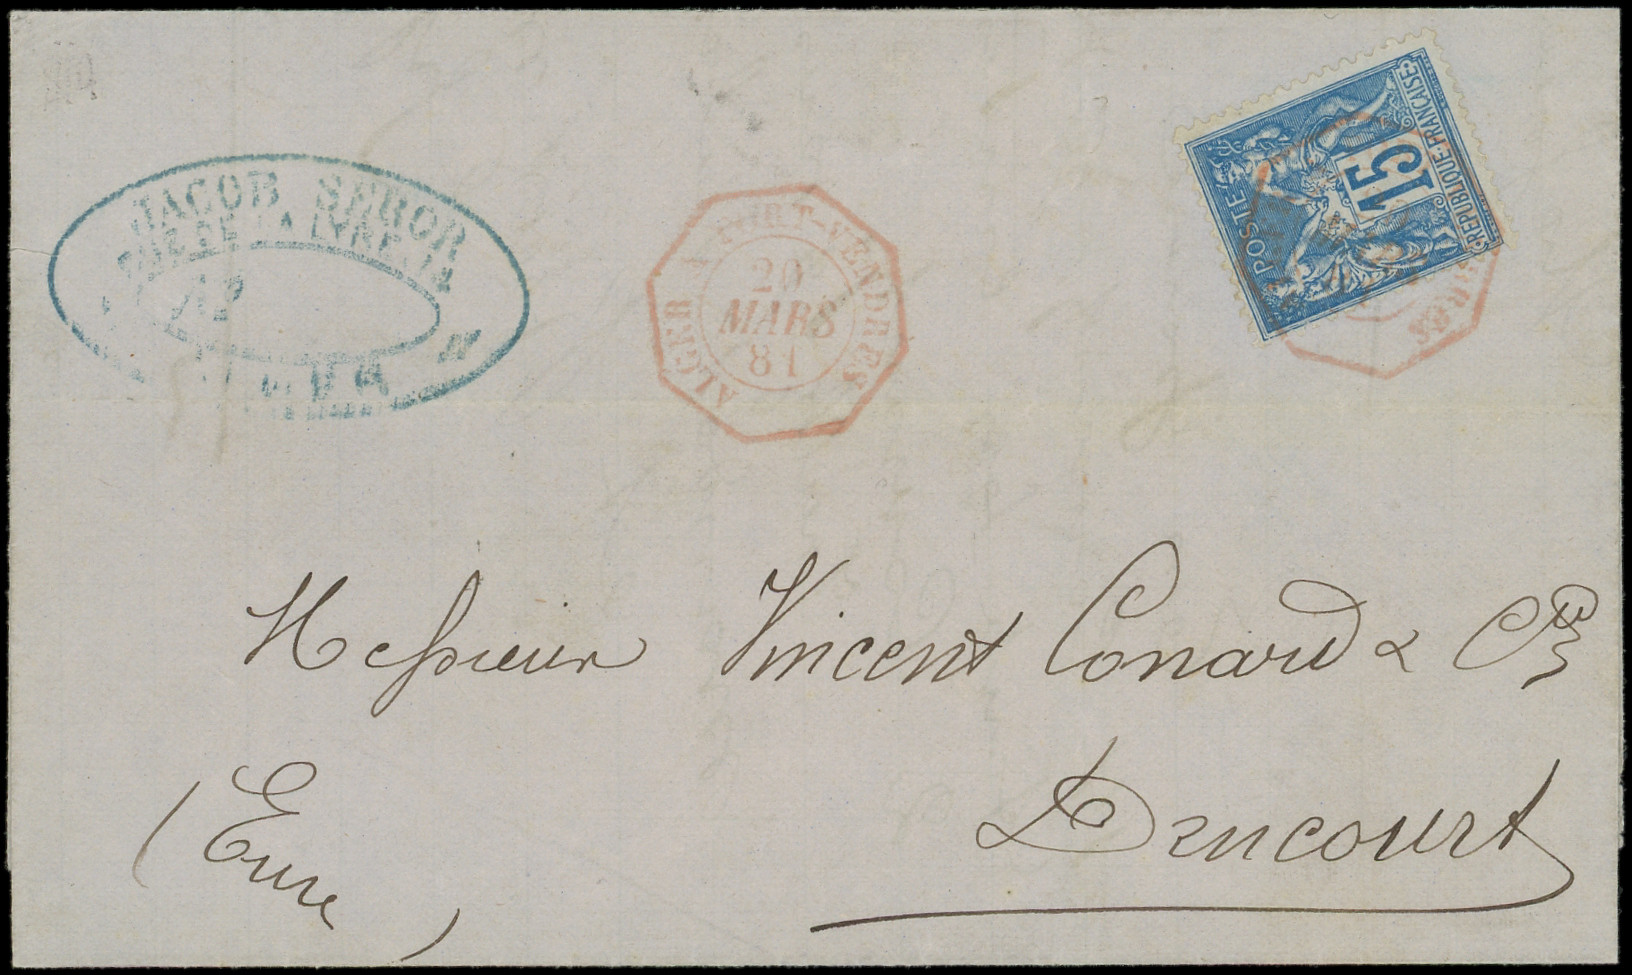 JACOB SEROR
RUE DE LA LYRE
ALGER A PORT-VENDRES
20
MARS
81
POSTES
15
REPUBLIQUE FRANÇAISE
Messieurs Vincent Conard & Cie
Dencourt
(Eure)